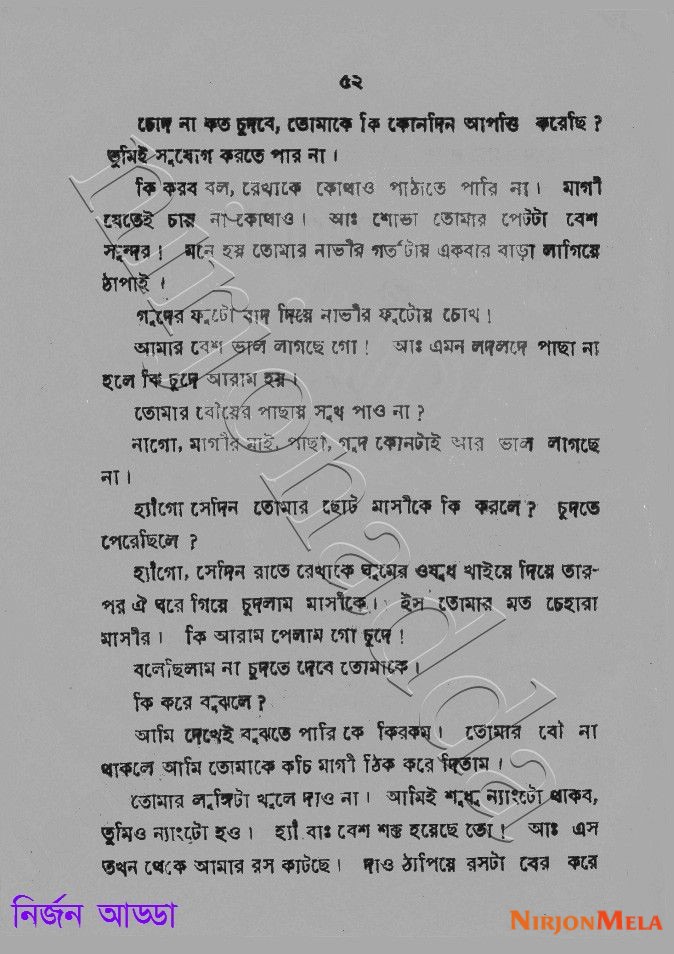 ৫২
চোদ না কত চুদবে, তোমাকে কি কোনদিন আপত্তি করেছি ?
তুমিই সুযোগ করতে পার না ।
কি করব বল, রেখাকে কোথাও পাঠাতে পারি না । মাগী
যেতেই চায় না কোথাও । আঃ শোভা তোমার পেটটা বেশ
সুন্দর ! মনে হয় তোমার নাভীর গর্তটায় একবার বাড়া লাগিয়ে
ঠাপাই ।
গুদের ফুটো বাদ দিয়ে নাভীর ফুটোয় চোখ !
আমার বেশ ভাল লাগছে গো ! আঃ এমন লদলদে পাছা না
হলে কি চুদে আরাম হয় ।
তোমার বৌয়ের পাছায় সুখ পাও না ?
নাগো, মাগীর মাই, পাছা, গুদ কোনটাই আর ভাল লাগছে
না ।
হ্যাঁগো সেদিন তোমার ছোট মাসীকে কি করলে ? চুদতে
পেরেছিলে ?
হ্যাঁগো, সেদিন রাতে রেখাকে ঘুমের ওষুধ খাইয়ে দিয়ে তার-
পর ঐ ঘরে গিয়ে চুদলাম মাসীকে । ইস তোমার মত চেহারা
মাসীর । কি আরাম পেলাম গো চুদে !
বলেছিলাম না চুদতে দেবে তোমাকে ।
কি করে বুঝলে ?
আমি দেখেই বুঝতে পারি কে কিরকম । তোমার বৌ না
থাকলে আমি তোমাকে কচি মাগী ঠিক করে দিতাম ।
তোমার লুঙ্গিটা খুলে দাও না । আমিই শুধু ন্যাংটো থাকব,
তুমিও ন্যাংটো হও । হ্যাঁ বাঃ বেশ শক্ত হয়েছে তো ! আঃ এস
তখন থেকে আমার রস কাটছে । দাও ঠাপিয়ে রসটা বের করে
nirjonadda
নির্জন আড্ডা
NIRJONMELA